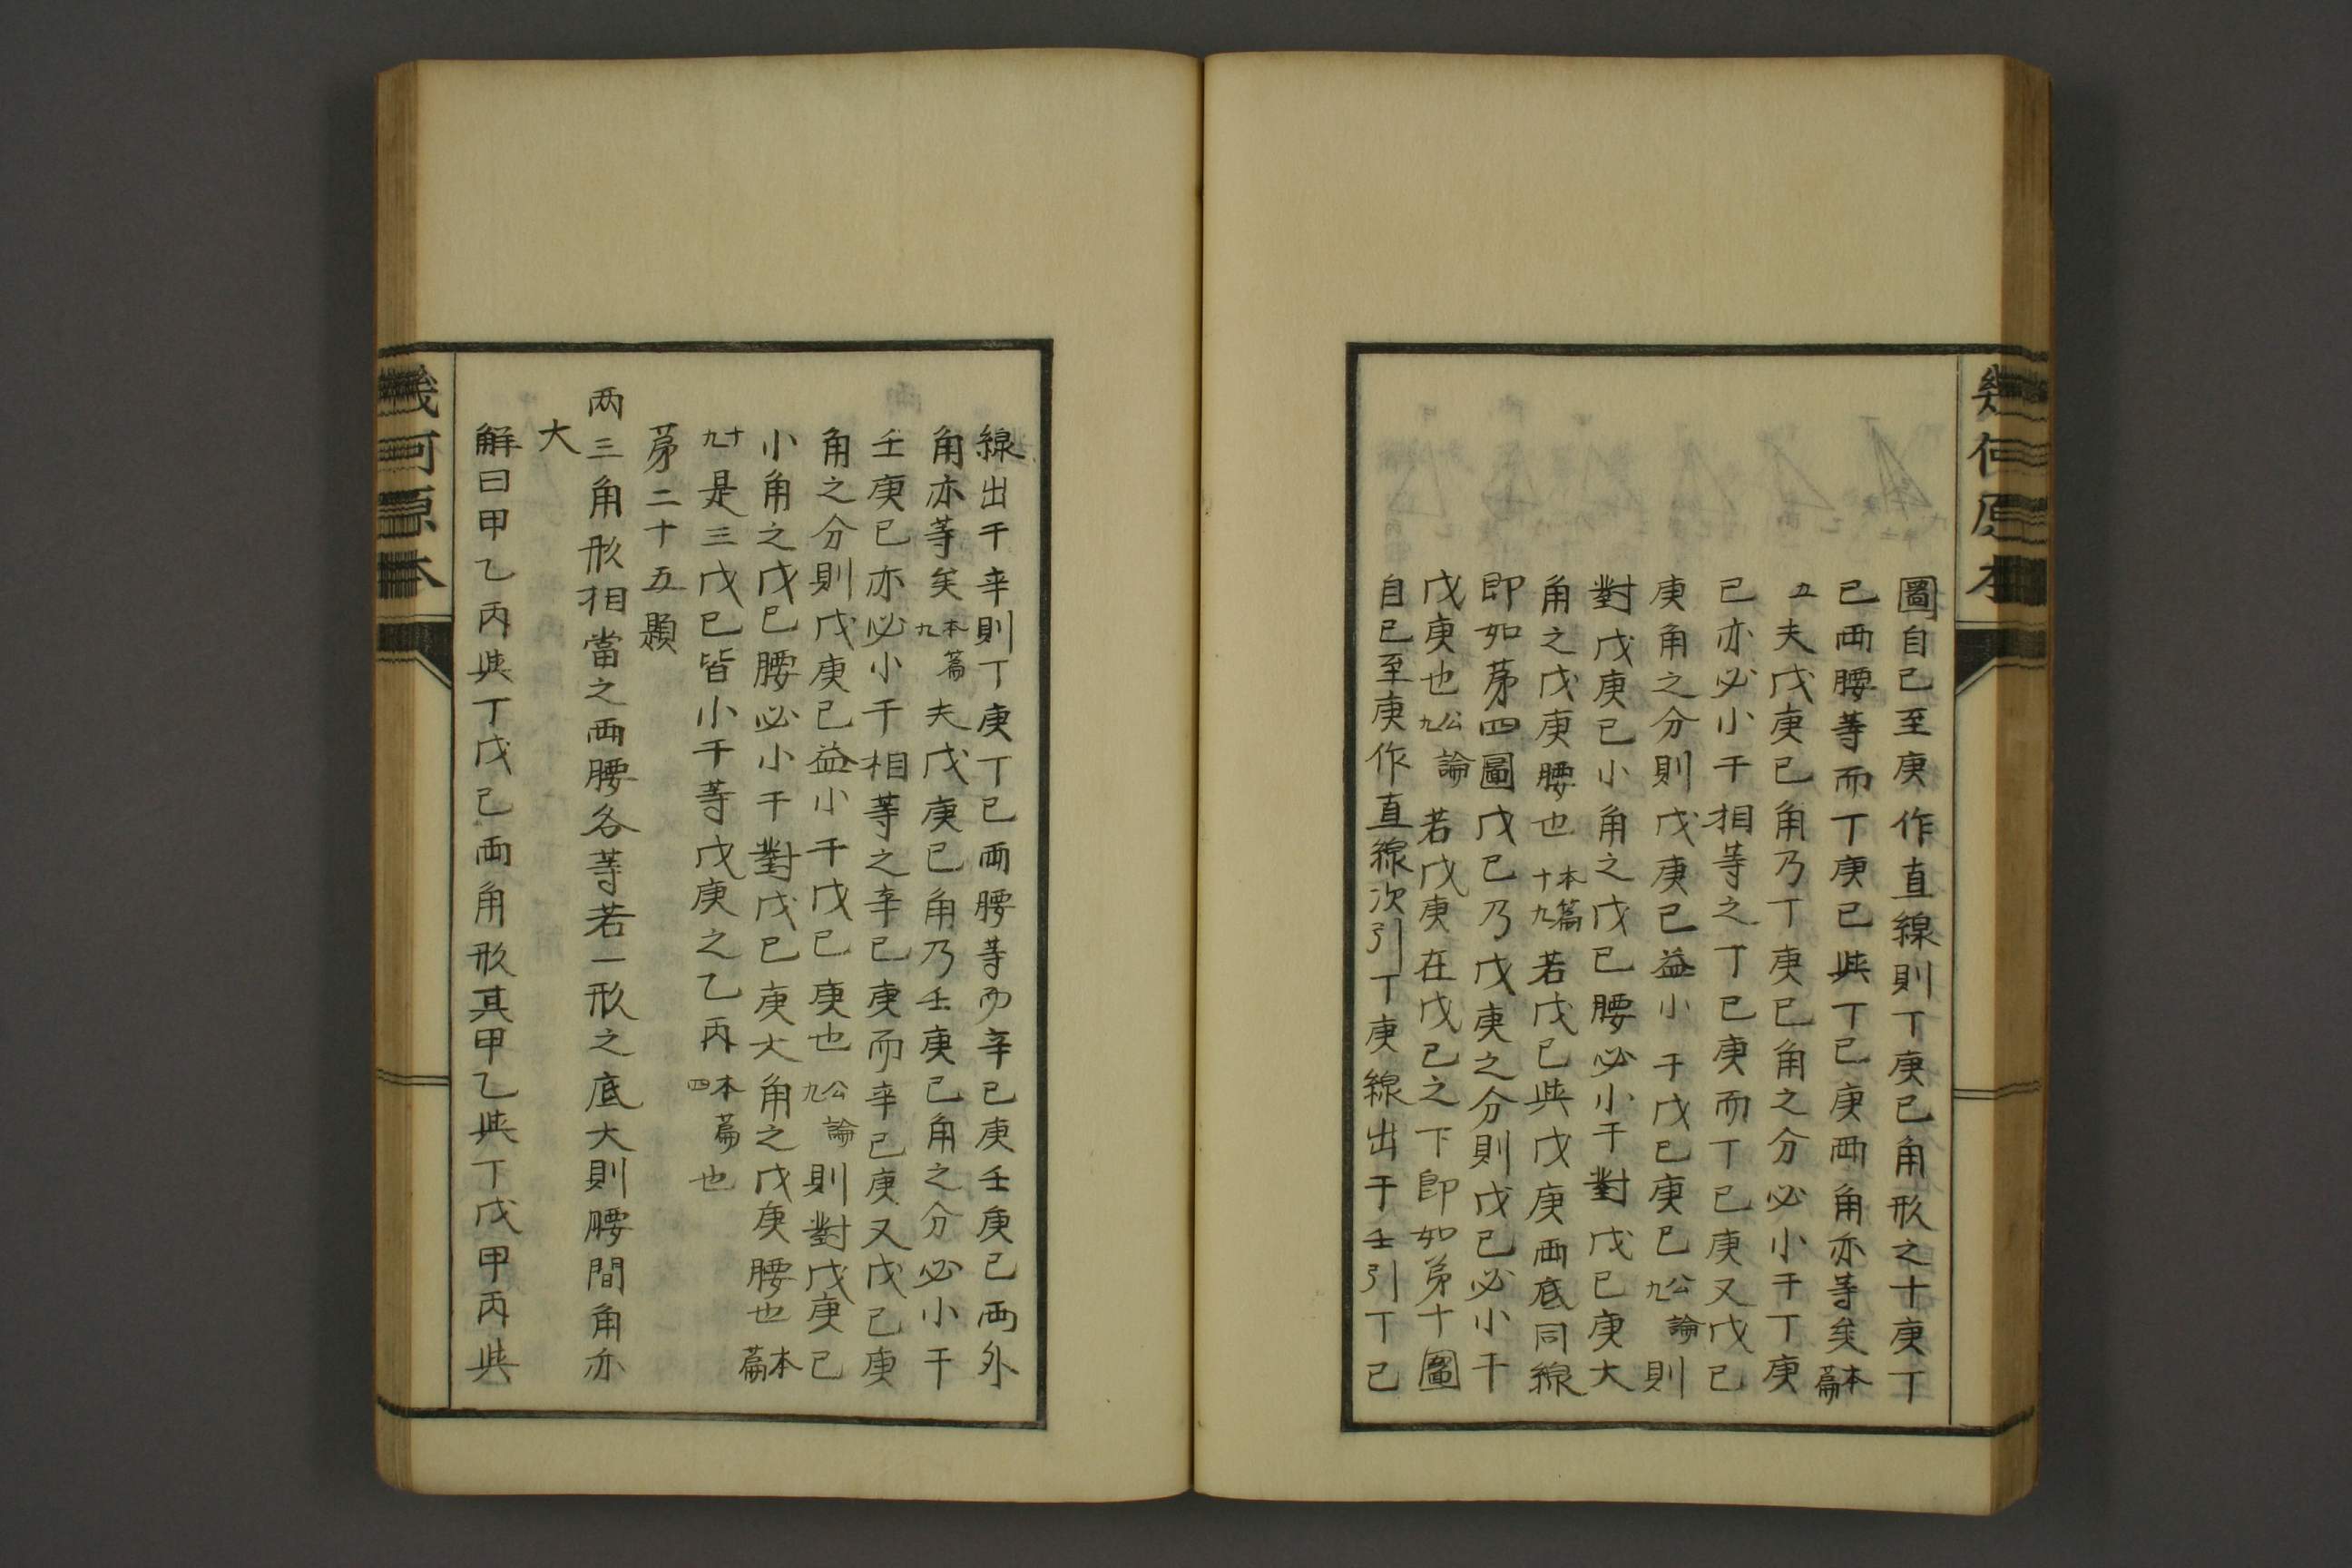 幾何原本
圖自已至庚作直線則丁庚已角形之十庚丁
已兩腰等而丁庚已與丁已庚兩角亦等矣本篇
五夫戊庚已角乃丁庚已角之分必小于丁庚
已亦必小于相等之丁已庚而丁已庚又戊已
庚角之分則戊庚已益小于戊已庚已公論九則
對戊庚已小角之戊已腰必小于對戊已庚大
角之戊庚腰也本篇十九若戊已與戊庚兩底同線
即如苐四圖戊已乃戊庚之分則戊已必小于
戊庚也公論九若戊庚在戊已之下即如苐十圖
自已至庚作直線次引丁庚線出于壬引丁已
線出于辛則丁庚丁已兩腰等而辛已庚壬庚已兩外
角亦等矣本篇九夫戊庚已角乃壬庚已角之分必小于
壬庚已亦必小于相等之辛已庚而辛已庚又戊已庚
角之分則戊庚已益小于戊已庚也公論九則對戊庚已
小角之戊已腰必小于對戊已庚大角之戊庚腰也本篇
十九是三戊已皆小于等戊庚之乙丙本篇四也
苐二十五題
兩三角形相當之兩腰各等若一形之底大則腰間角亦
大
解曰甲乙丙與丁戊已兩角形其甲乙與丁戊甲丙與
幾何原本